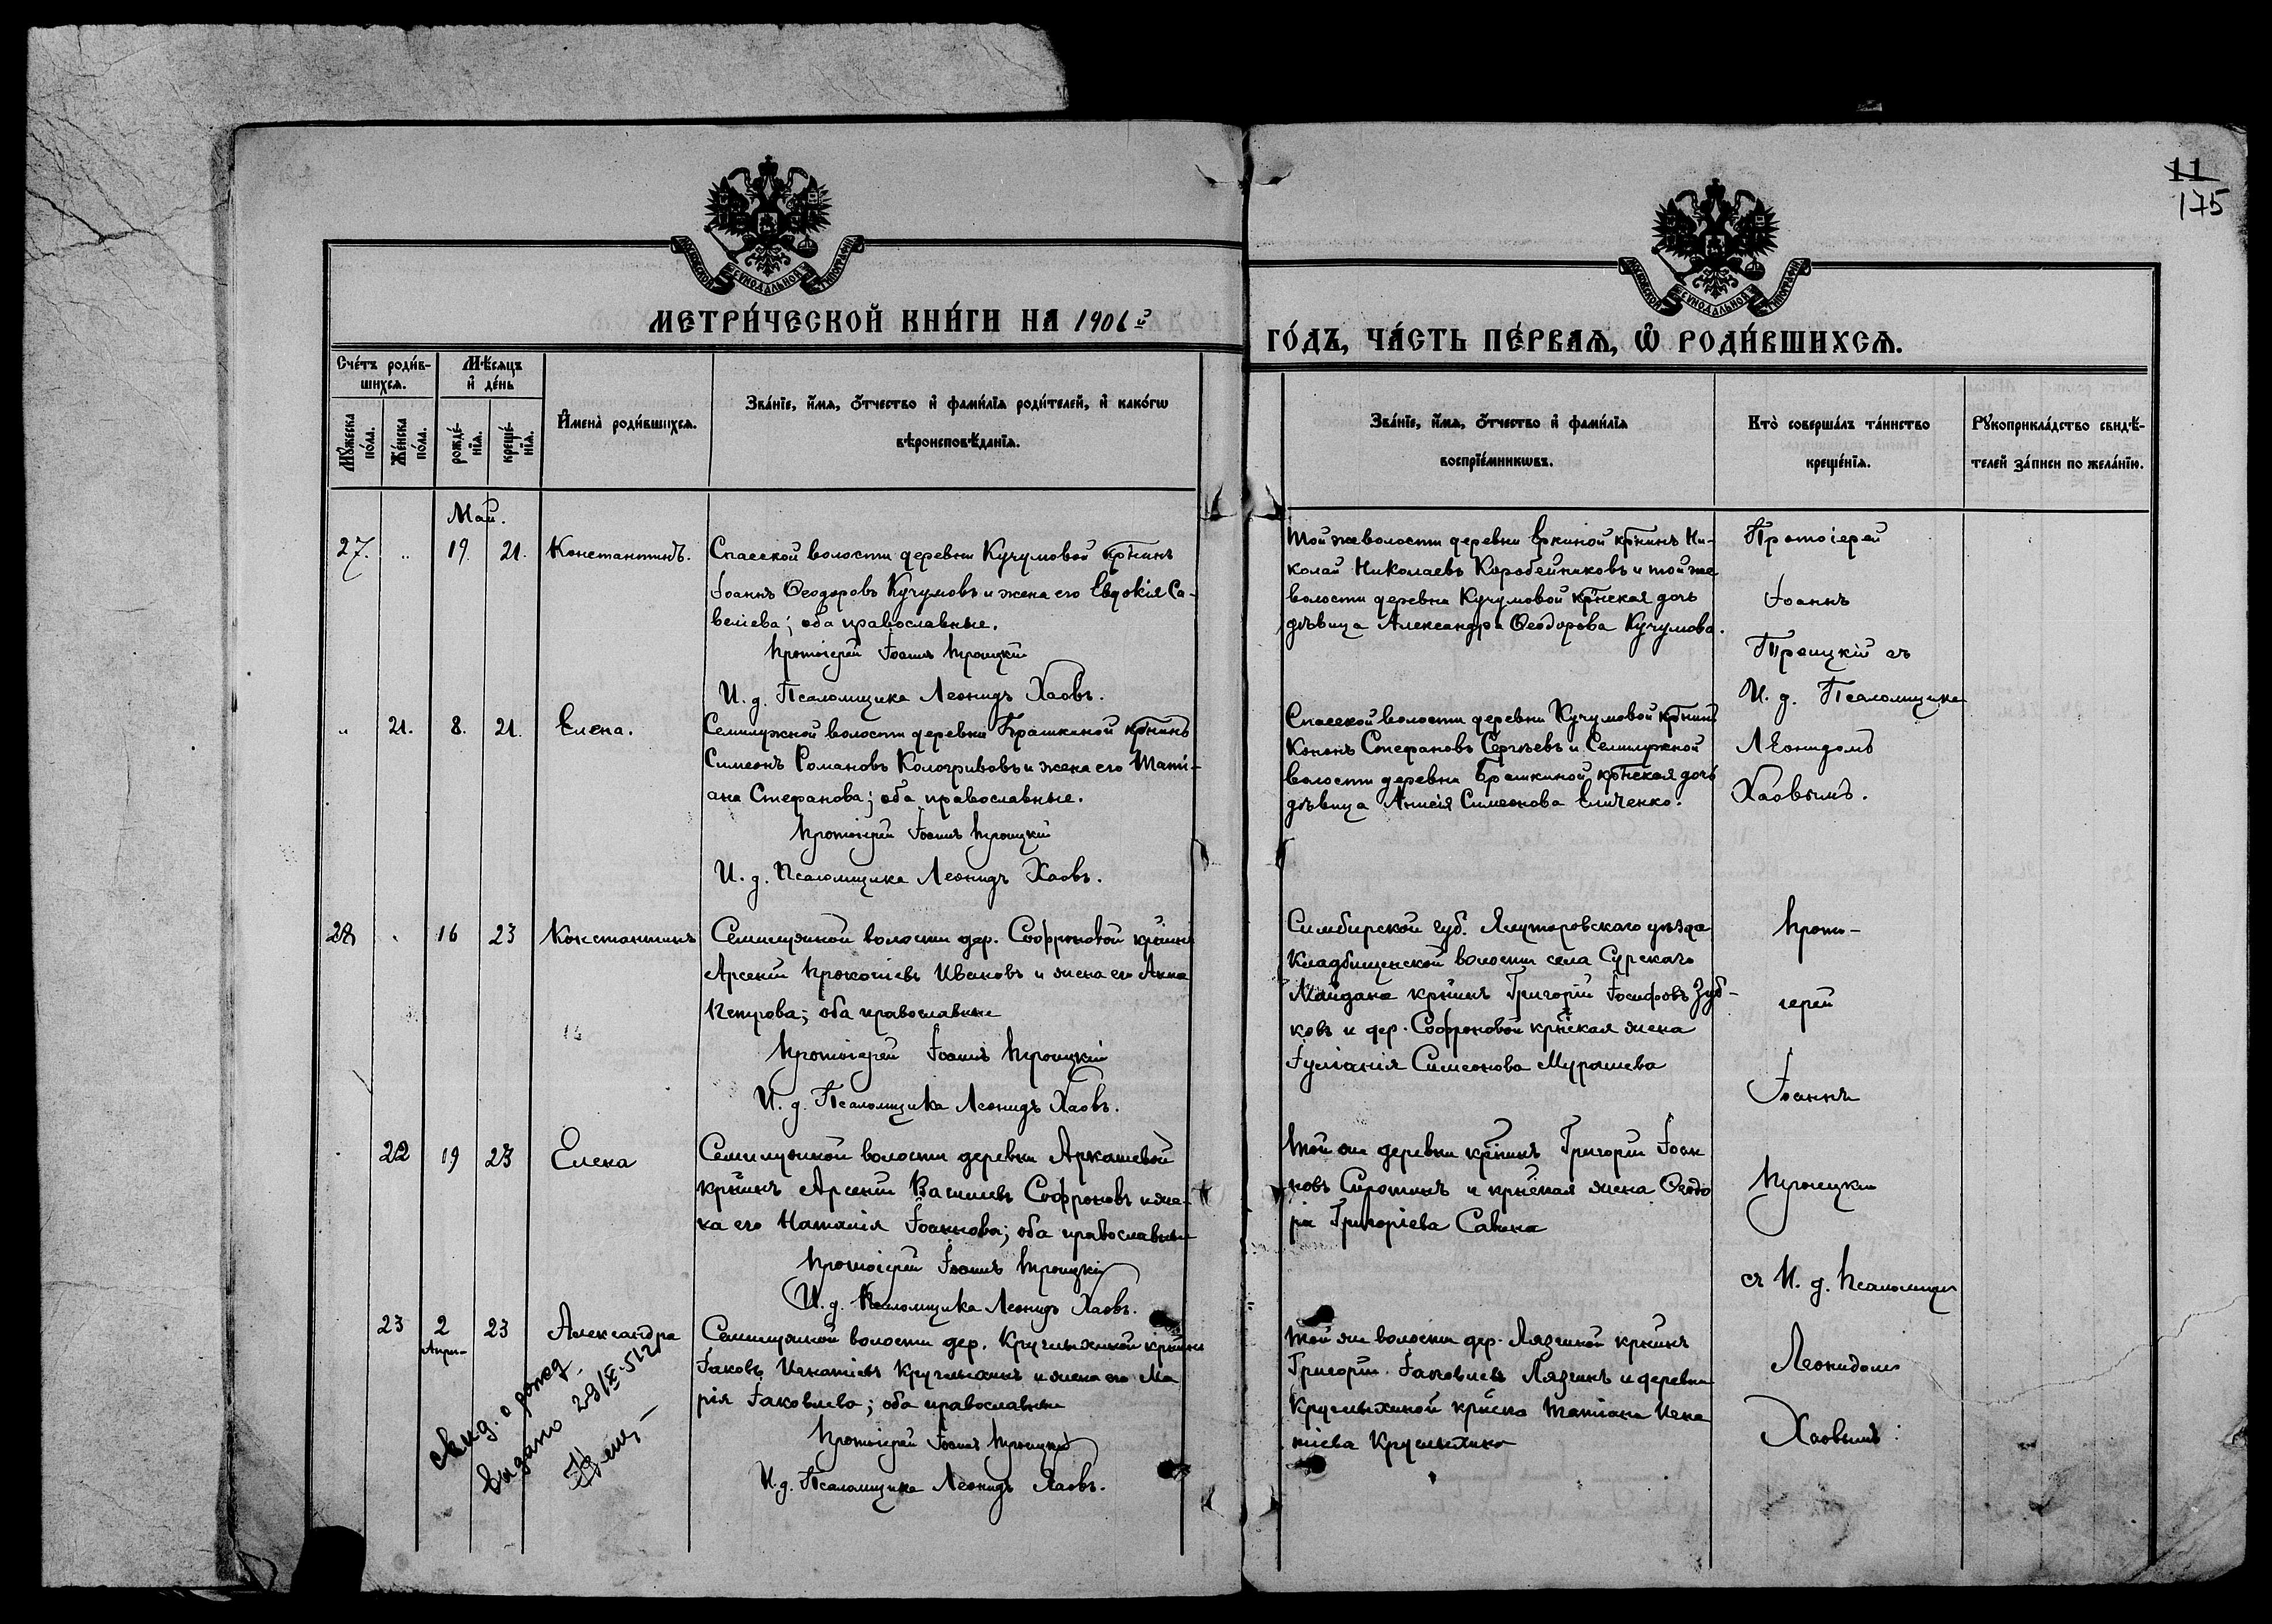 11
175
МОСКОВСКОЙ СѴНОДАЛЬНОЙ ТИПОГРАФІИ
МОСКОВСКОЙ СѴНОДАЛЬНОЙ ТИПОГРАФІИ
МЕТРИ́ЧЕСКОЙ КНИ́ГИ НА 1906й
ГО́ДЪ, ЧА́СТЬ ПЕ́РВАѦ, Ѡ РОДИ́ВШИХСѦ.
Сче́тъ роди́в-
шихсѧ.
Мѣ́сѧцъ
и де́нь
Мꙋ́жеска
по́ла.
Же́нска
по́ла.
рожде́-
нїѧ.
креще́-
нїѧ.
Имена̀ роди́вшихсѧ.
Зва́нїе, и́мѧ, ѻ́тчество и фами́лїѧ роди́телей, и како́гѡ
вѣроисповѣ́данїѧ.
Зва́нїе, и́мѧ, ѻ́тчество и фами́лїѧ
воспрїе́мникѡвъ.
Кто̀ соверша́лъ та́инство
креще́нїѧ.
Рꙋкоприкла́дство свидѣ́-
телей за́писи по жела́нїю.
Май.
27. " 19. 21. Константинъ.
Спасской волости деревни Кучумовой кр̃нинъ
Іоаннъ Ѳеодоровъ Кучумовъ и жена его Евдокія Са-
веліева; оба православные.
Протоіерей Іоаннъ Троицкій
И. д. Псаломщика Леонидъ Хаовъ.
Той же волости деревни Еркиной кр̃нинъ Ни-
колай Николаевъ Коробейниковъ и той же
волости деревни Кучумовой кр̃нская дочь
дѣвица Александра Ѳеодорова Кучумова.
Протоіерей
Іоаннъ
Троицкій съ
И. д. Псаломщика
Леонидомъ
Хаовымъ.
" 21. 8. 21. Елена.
Семилужной волости деревни Брашкиной кр̃нинъ
Симеонъ Романовъ Кологривовъ и жена его Тати-
ана Стефанова; оба православные.
Протоіерей Іоаннъ Троицкій
И. д. Псаломщика Леонидъ Хаовъ.
Спасской волости деревни Кучумовой кр̃нинъ
Кононъ Стефановъ Сергѣевъ и Семилужной
волости деревни Брашкиной кр̃нская дочь
дѣвица Анисія Симеонова
28 16 23 Константинъ
Семилужной волости дер. Софроновой кр̃нинъ
Арсеній Прокопіевъ Ивановъ и жена его Анна
Петрова; оба православные
Протоіерей Іоаннъ Троицкій
И. д. Псаломщика Леонидъ Хаовъ.
Симбирской губ. уѣзда
Кладбищенской волости села Сурскаго
Майдана кр̃нинъ Григорій Іосифовъ Зуб-
ковъ и дер. Софроновой кр̃нская жена
Іуліанія Симеонова Мурашева
Прото-
іерей
Іоаннъ
Троицкій
съ И. д. Псаломщи
Леонидомъ
Хаовымъ
22 19 23 Елена
Семилужной волости деревни Аркашевой
кр̃нинъ Арсеній Василіевъ Софроновъ и же-
на его Наталія Іоаннова; оба православные
Протоіерей Іоаннъ Троицкій
И. д. Псаломщика Леонидъ Хаовъ.
Той же деревни кр̃нинъ Григорій Іоан
новъ Сиротинъ и кр̃нская жена Ѳеодо
ра Григоріева Савина
23 2 23 Александра
Апрѣ-
Семилужной волости дер. Круглыхиной кр̃нинъ
Іаковъ Игнатіевъ Круглыхинъ и жена его Ма
рія Іаковлева; оба православные
Протоіерей Іоаннъ Троицкій
И. д. Псаломщика Леонидъ Хаовъ.
Той же волости дер. Лязгиной кр̃нинъ
Григорій Іаковлевъ Лязгинъ и деревни
Круглыхиной кр̃нска Татіана Игна
тіева Круглыхина
свид. о рожд.
выдано 23/X-51г